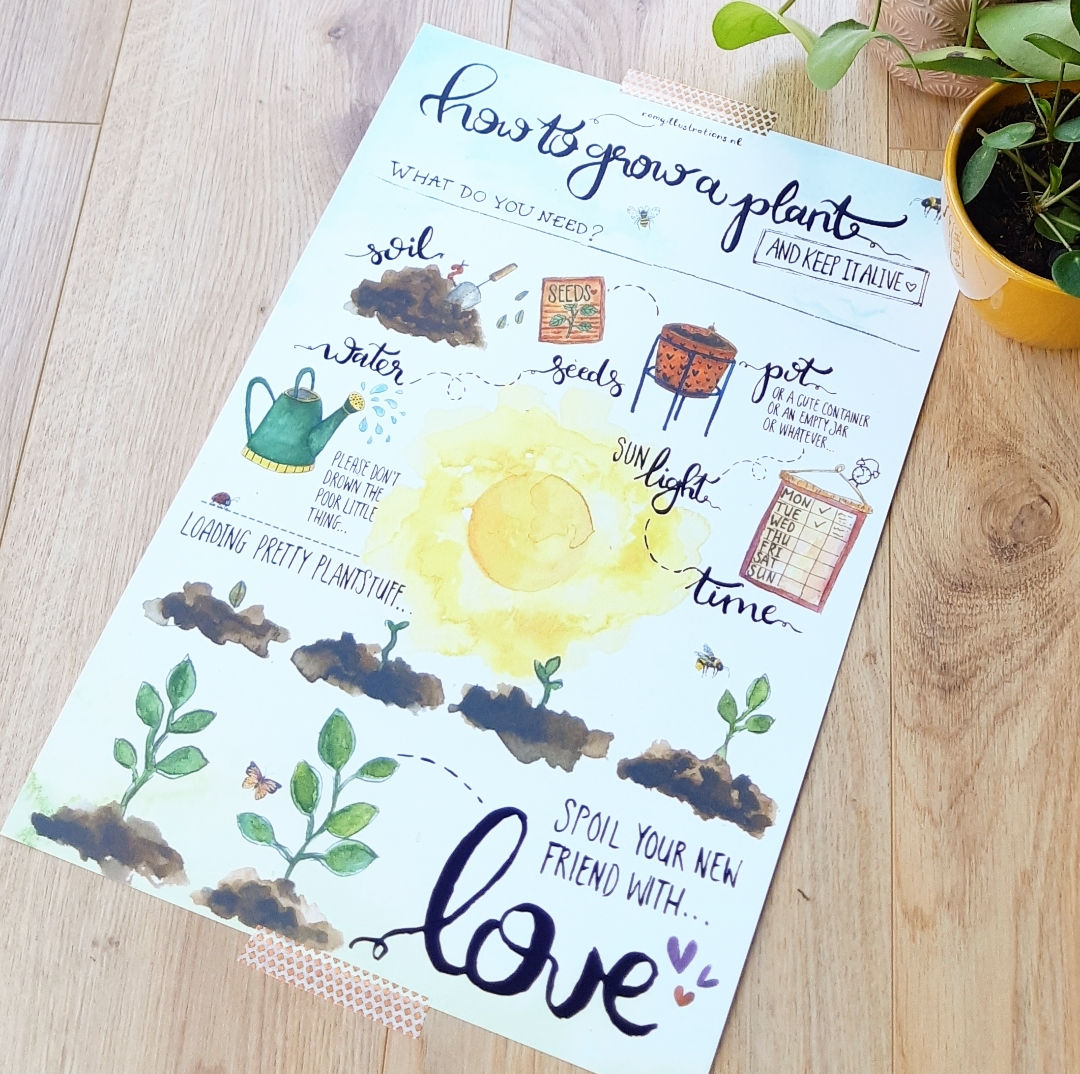 romyillustrations.nl
how to grow a plant
AND KEEP IT ALIVE
WHAT DO YOU NEED?
soil
SEEDS
seeds
pot
OR A CUTE CONTAINER
OR AN EMPTY JAR
OR WHATEVER...
water
PLEASE DON'T
DROWN THE
POOR LITTLE
THING...
SUNlight
MON
TUE
WED
THU
FRI
SAT
SUN
time
LOADING PRETTY PLANTSTUFF...
SPOIL YOUR NEW
FRIEND WITH...
love